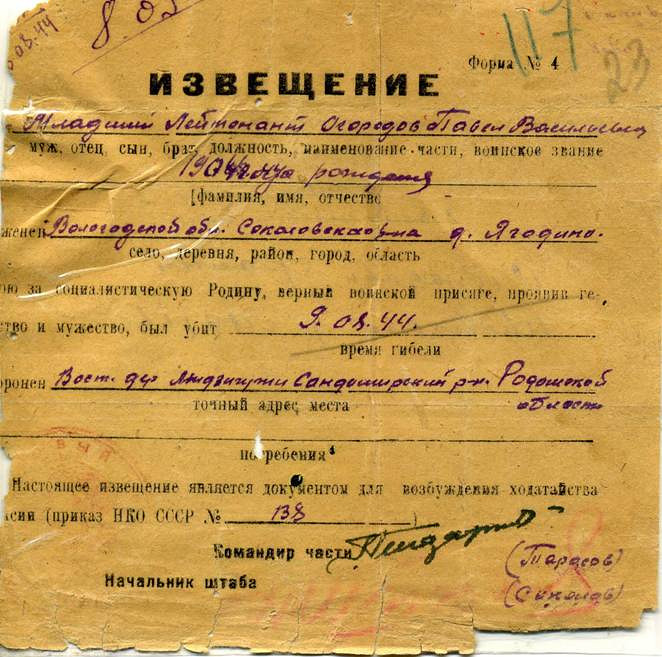 8.0
08.44
117
23
Форма № 4
ИЗВЕЩЕНИЕ
Младший Лейтенант Огородов Павел Васильевич
муж, отец, сын, брат, должность, наименование части, воинское звание
рождения
[фамилия, имя, отчество
женец Вологодской обл. д. Ягодино.
село, деревня, район, город, область
ою за социалистическую Родину, верный воинской присяге, проявив ге-
ство и мужество, был убит 9.08.44.
время гибели
оронен Вост. дер Сандомирский р-н. Радомской
точный адрес места области
погребения
Настоящее извещение является документом для возбуждения ходатайства
сии (приказ НКО СССР № )
Командир части
(Тарасов)
Начальник штаба